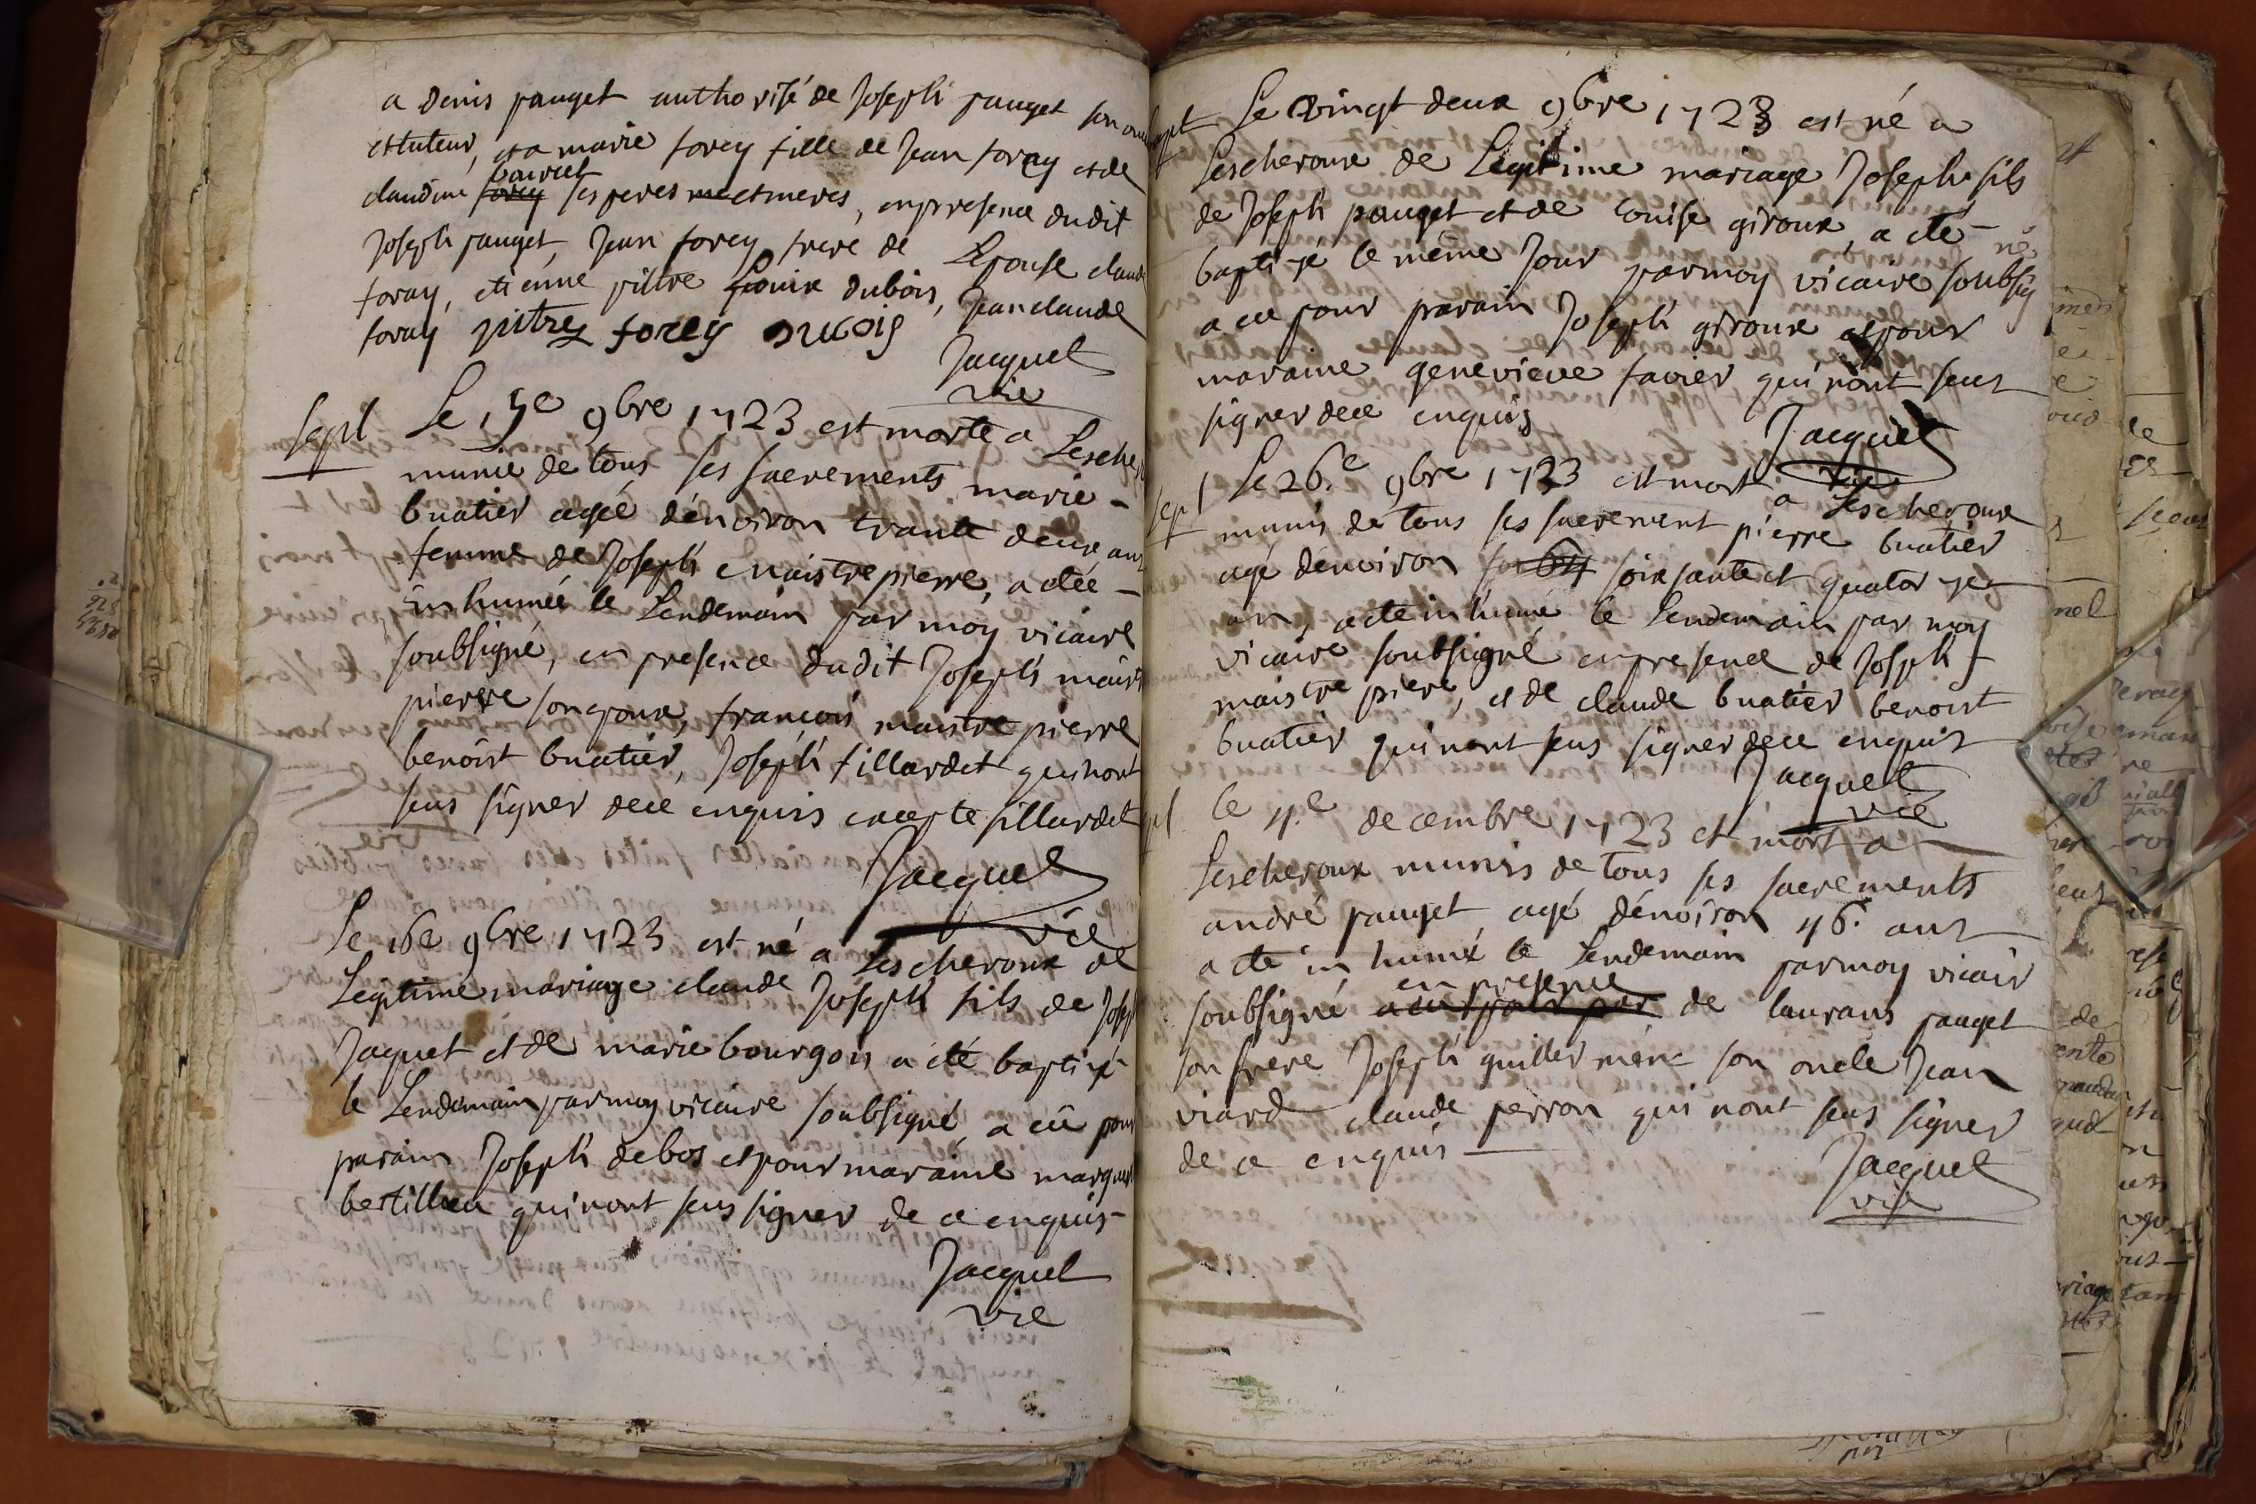 a Denis pauget authorisé de Joseph pauget son
et tuteur, et a marie forey fille de Jean foray et de
claudine pauvret ses peres et meres, en presence dudit
Joseph pauget, Jean forey frere de Lepouse claude
foray, etienne pittre Louix dubois, Jean claude
foray pitre forey DUBOIS
Jacquet
vic
sept Le 15e 9bre 1723 est morte a Lesche
munie de tous ses sacrements marie
buatier agée dénviron trante deux ans
femme de Joseph maistre pierre, a étée
inhumée le Lendemain par moy vicaire
soubsigné, en presence dudit Joseph maist
pierre son epoux, françois maistre pierre
benoist buatier, Joseph fillardet qui nont
seus signer de ce enquis excepte fillardet
Jacquet
vic
Le 16e 9bre 1723 est né a Lescheroux de
Legitime mariage claude Joseph fils de Josep
Jaquet et de marie bourgois a été baptizé
le Lendemain par moy vicaire soubsigné, a eü pour
parain Joseph debos et pour maraine margueri
bertillien qui nont seus signer de ce enquis
Jacquet
vic
bapt Le Vingt deux 9bre 1723 est né a
Lescheroux de Legitime mariage Joseph fils
de Joseph pauget et de Louise giroux, a été
baptizé le même Jour par moy vicaire soubsig
né
a eu pour parain Joseph giroux et pour
maraine genevieve favier qui nont seus
signer de ce enquis
Jacquet
vic
sept Le 26.e 9bre 1723 est mort a Lescheroux
munis de tous ses sacrement pierre buatier
agé dénviron soixante et quatorze
an, a été inhumé le Lendemain par moy
vicaire soubsigné en presence de Joseph
maistre piere, et de claude buatier benoist
buatier qui nont seus signer de ce enquis
Jacquet
vic
le 4.e decembre 1723 est mort a
Lescheroux munis de tous ses sacrements
andré pauget agé dénviron 46. ans
a été inhumé le Lendemain par moy vicair
soubsigné en presence de laurans pauget
son frere Joseph guillermenc son oncle Jean
viard claude perron qui nont seus signer
de ce enquis
Jacquet
vic